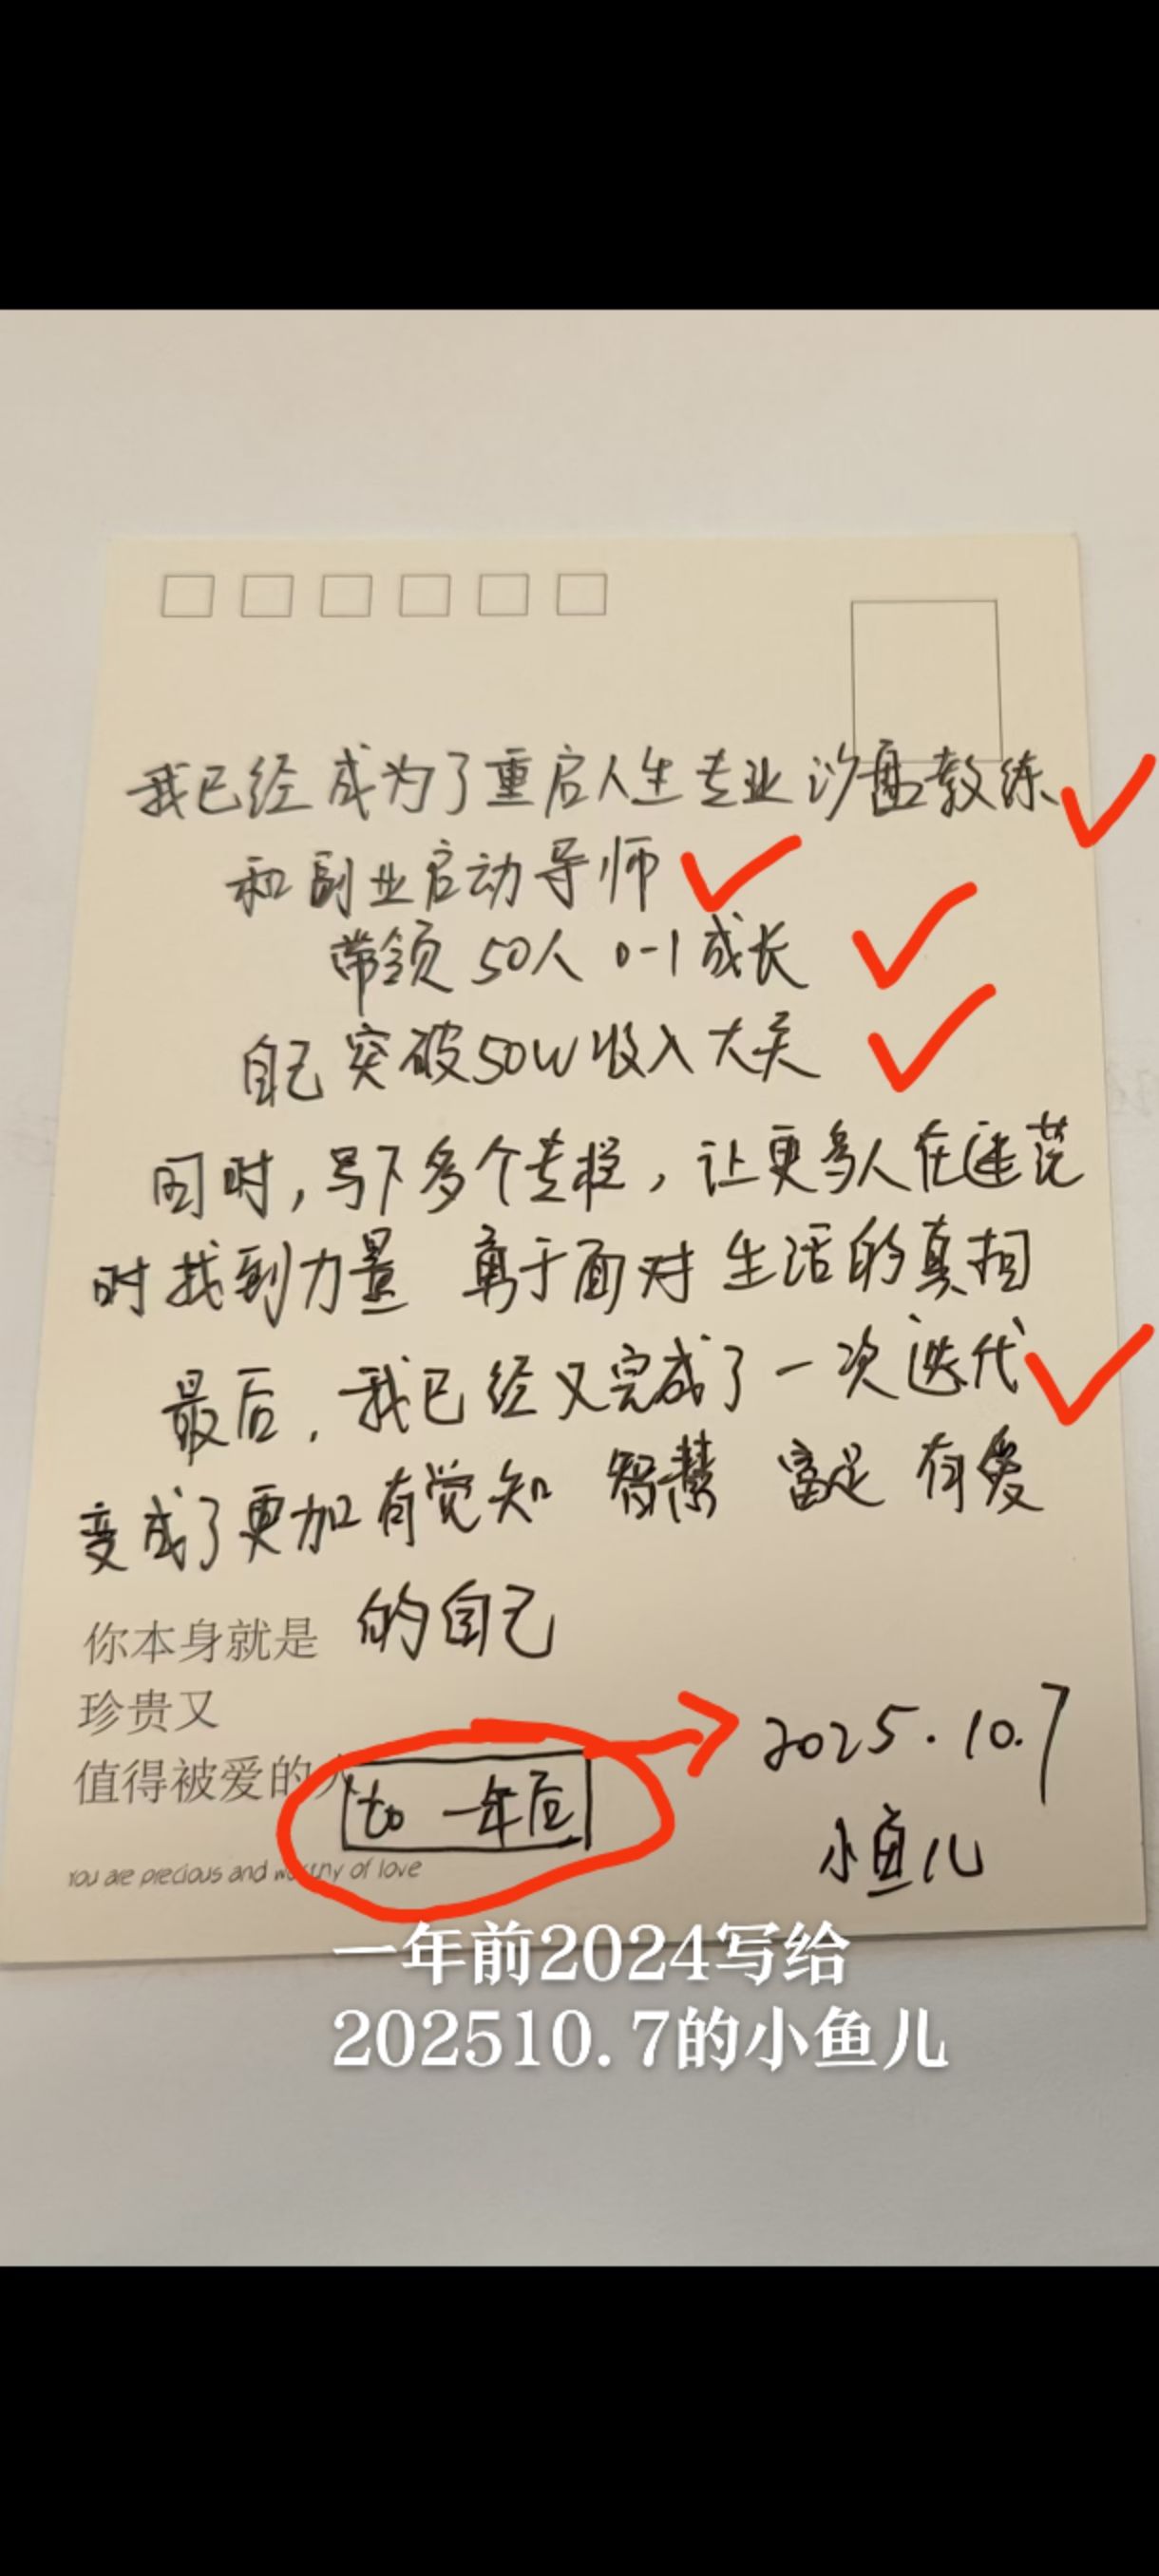 我已经成为了重启人生专业沙盘教练
和副业启动导师
带领50人 0-1成长
自己突破50W收入大关
同时,写下多个专栏,让更多人在迷茫
时找到力量 勇于面对生活的真相
最后,我已经又完成了一次迭代
变成了更加有觉知 智慧 富足 有爱
的自己
你本身就是
珍贵又
值得被爱的人
You are precious and worthy of love
to 一年后
2025.10.7
小鱼儿
一年前2024写给
202510.7的小鱼儿